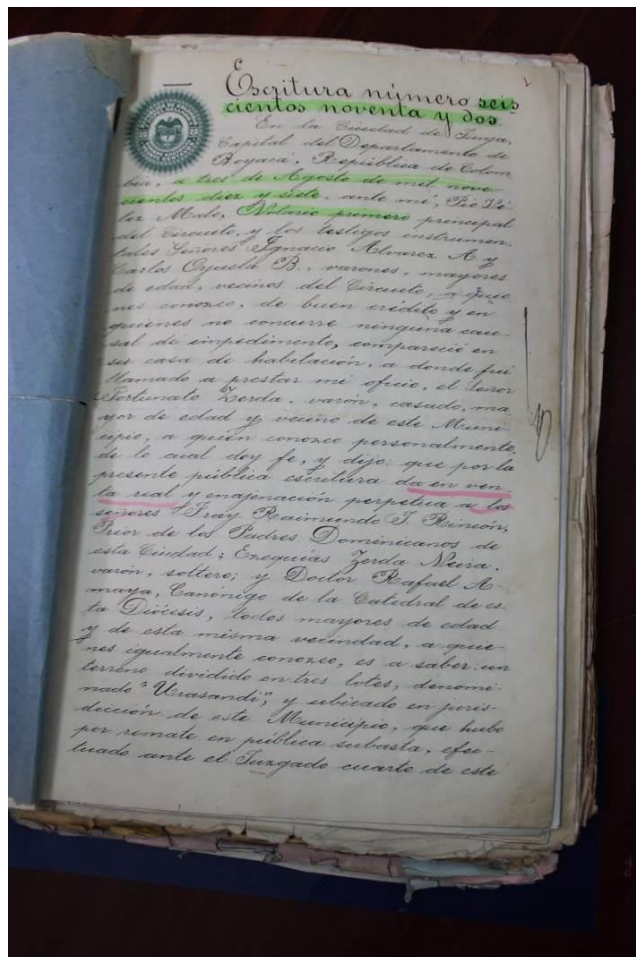 Escritura número seis
cientos noventa y dos.
En la Ciudad de Tunja,
Capital del Departamento de
Boyacá, República de Colom
bia, a tres de Agosto de mil nove
cientos diez y siete, ante mí, Pío Vé
lez Malo, Notario primero principal
del Circuito, y los testigos instrumen-
tales Señores Ignacio Alvarez A. y
Carlos Orjuela B., varones, mayores
de edad, vecinos del Circuito, a quie
nes conozco, de buen crédito y en
quienes no concurre ninguna cau-
sal de impedimento, compareció en
su casa de habitación, a donde fuí
llamado a prestar mi oficio, el Señor
Fortunato Zerda, varón, casado, ma
yor de edad y vecino de este Muni
cipio, a quien conozco personalmente,
de lo cual doy fe, y dijo: que por la
presente pública escritura da en ven
ta real y enajenación perpetua a los
señores Fray Raimundo J. Rincón,
Prior de los Padres Dominicanos de
esta Ciudad; Ezequías Zerda Neira,
varón, soltero; y Doctor Rafael A-
maya, Canónigo de la Catedral de es-
ta Diócesis, todos mayores de edad
y de esta misma vecindad, a quie-
nes igualmente conozco, es a saber: un
terreno dividido en tres lotes, denomi-
nado "Urasandi", y ubicado en juris-
dicción de este Municipio, que hubo
por remate en pública subasta, efec-
tuado ante el Juzgado cuarto de este